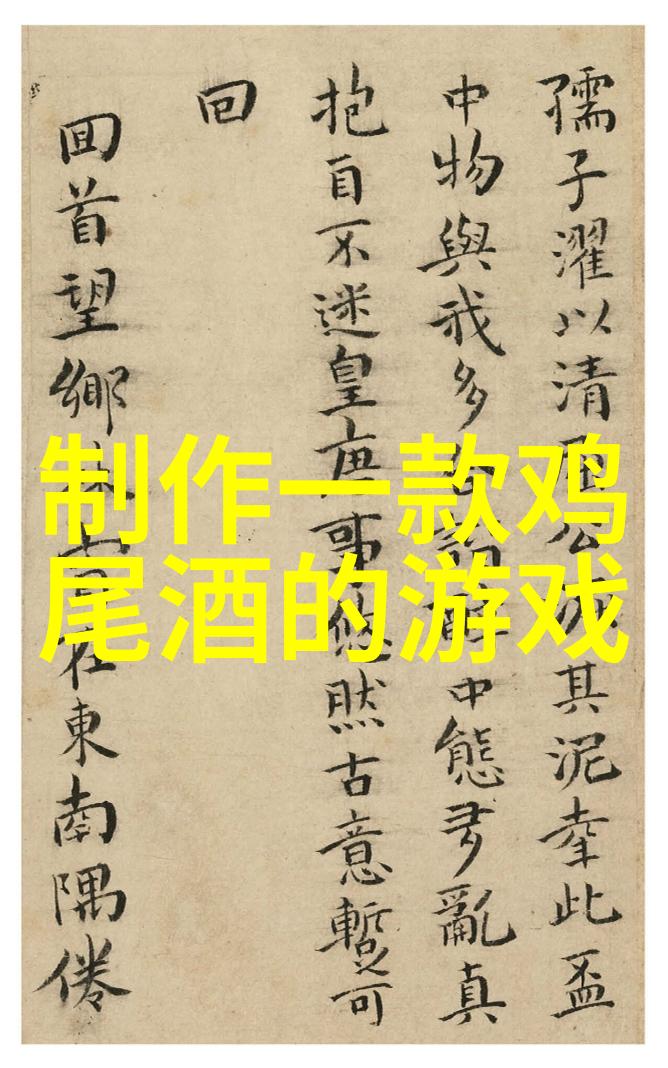 制作一款鸡
尾酒的游戏
孺子濯以清公其泥幸此盃
中物與我多中態多亂真
抱自不迷皇唐事悠然古意暫可
回
回首望鄉在東南隅倦